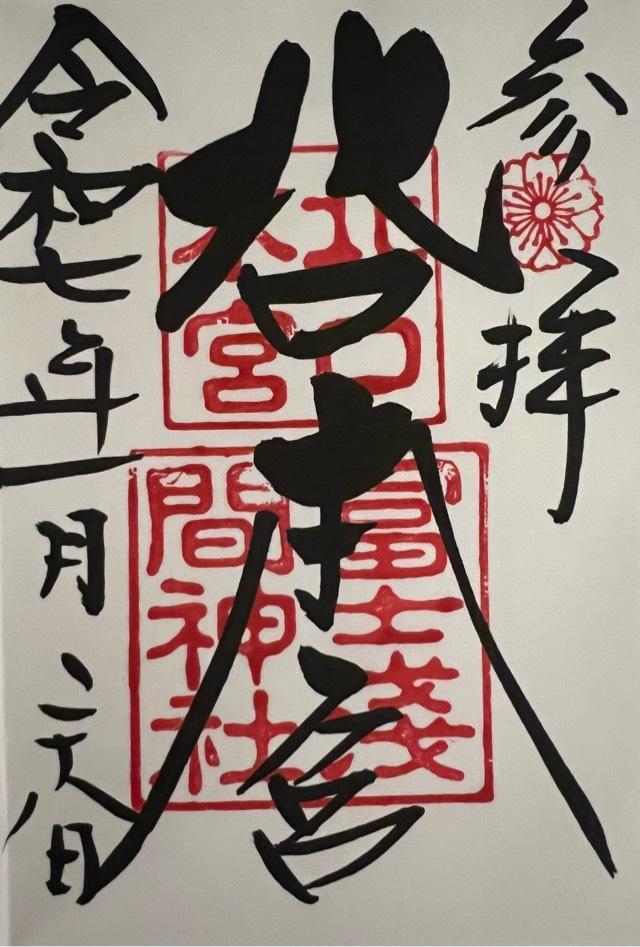 参拝
北口本宮
令和七年一月二十八日
北口
本宮
冨士淺
間神社